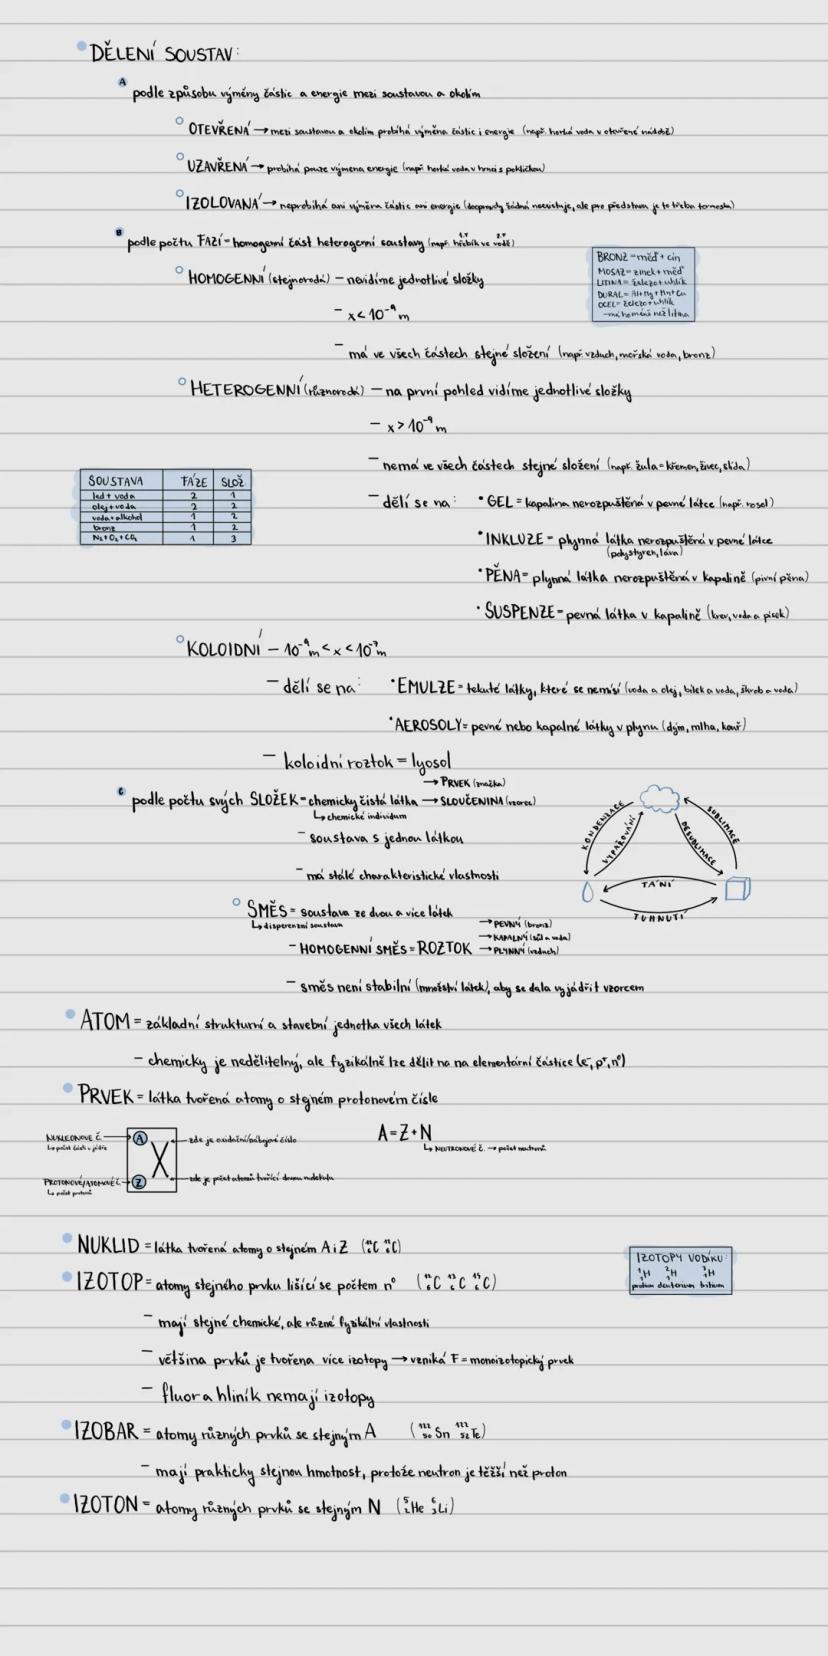 DĚLENÍ SOUSTAV:
A podle způsobu výměny částic a energie mezi soustavou a okolím
OTEVŘENÁ → mezi soustavou a okolím probíhá výměna částic i energie (např. horká voda v otevřené nádobě)
UZAVŘENÁ → probíhá pouze výmena energie (např horká voda v hrnci s pokličkou)
IZOLOVANÁ → neprobíhá ani výměna částic ani energie (doopravdy žádná neexistuje, ale pro představu je to třeba termoska)
B podle počtu FAZÍ = homogenní část heterogenní soustavy (např. hřebík ve vodě)
1. 2.
BRONZ = měď + cín
MOSAZ = zinek + měď
LITINA = železo + uhlík
DURAL = Al + Mg + Mn + Cu
OCEL = železo + uhlík
- má ho méně než litina
HOMOGENNÍ (stejnorodá) – nevidíme jednotlivé složky
– x < 10⁻⁹ m
– má ve všech částech stejné složení (např. vzduch, mořská voda, bronz)
HETEROGENNÍ (různorodá) – na první pohled vidíme jednotlivé složky
– x > 10⁻⁹ m
– nemá ve všech částech stejné složení (např. žula = křemen, živec, slída)
SOUSTAVA FÁZE SLOŽ
led + voda 2 1
olej + voda 2 2
voda + alkohol 1 2
bronz 1 2
N₂ + O₂ + CO₂ 1 3
– dělí se na: • GEL = kapalina nerozpuštěná v pevné látce (např. rosol)
• INKLUZE = plynná látka nerozpuštěná v pevné látce
(polystyren, láva)
• PĚNA = plynná látka nerozpuštěná v kapalině (pivní pěna)
• SUSPENZE = pevná látka v kapalině (krev, voda a písek)
KOLOIDNÍ – 10⁻⁹ m < x < 10⁻⁷ m
– dělí se na: • EMULZE = tekuté látky, které se nemísí (voda a olej, bílek a voda, škrob a voda)
• AEROSOLY = pevné nebo kapalné látky v plynu (dým, mlha, kouř)
– koloidní roztok = lyosol
→ PRVEK (značka)
C podle počtu svých SLOŽEK = chemicky čistá látka → SLOUČENINA (vzorec)
↳ chemické individum
– soustava s jednou látkou
– má stálé charakteristické vlastnosti
KONDENZACE
VYPAŘOVÁNÍ
SUBLIMACE
DESUBLIMACE
TÁNÍ
TUHNUTÍ
SMĚS = soustava ze dvou a více látek
↳ disperzní soustava
→ PEVNÝ (bronz)
→ KAPALNÝ (sůl a voda)
– HOMOGENNÍ SMĚS = ROZTOK → PLYNNÝ (vzduch)
– směs není stabilní (množství látek), aby se dala vyjádřit vzorcem
ATOM = základní strukturní a stavební jednotka všech látek
– chemicky je nedělitelný, ale fyzikálně lze dělit na na elementární částice (e⁻, p⁺, n⁰)
PRVEK = látka tvořená atomy o stejném protonovém čísle
NUKLEONOVÉ Č. → A
↳ počet částí v jádře
← zde je oxidační/nábojové číslo
X
PROTONOVÉ/ATOMOVÉ Č. → Z
↳ počet protonů
← zde je počet atomů tvořící danou molekulu
A = Z + N
↳ NEUTRONOVÉ Č. → počet neutronů
NUKLID = látka tvořená atomy o stejném A i Z (¹²₆C ¹²₆C)
IZOTOP = atomy stejného prvku lišící se počtem n⁰ (¹²₆C ¹³₆C ¹⁴₆C)
IZOTOPY VODÍKU:
¹₁H ²₁H ³₁H
protium deuterium tritium
– mají stejné chemické, ale různé fyzikální vlastnosti
– většina prvků je tvořena více izotopy → vzniká F = monoizotopický prvek
– fluor a hliník nemají izotopy
IZOBAR = atomy různých prvků se stejným A (¹²²₅₀Sn ¹²²₅₂Te)
– mají prakticky stejnou hmotnost, protože neutron je těžší než proton
IZOTON = atomy různých prvků se stejným N (⁵₂He ⁶₃Li)